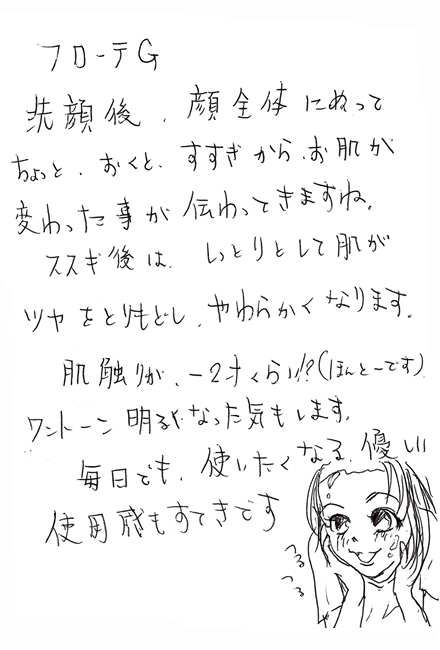 フローテG
洗顔後、顔全体にぬって
ちょっと、おくと、すすぎから、お肌が
変わった事が伝わってきますね。
ススギ後は、しっとりとして肌が
ツヤをとりもどし、やわらかくなります。
肌触りが、-2才くらい!?(ほんとーです)
ワントーン明るくなった気もします。
毎日でも、使いたくなる、優しい
使用感もすてきです
つる
つる